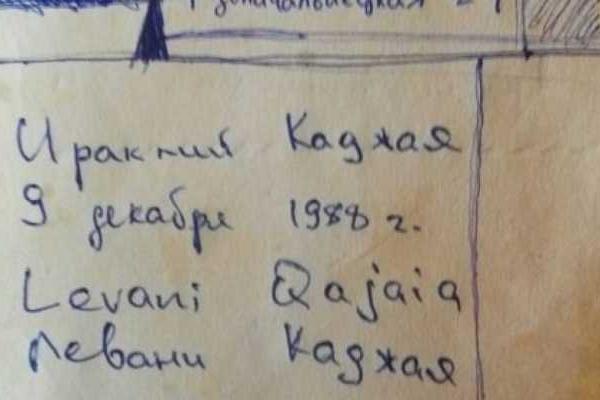 Ираклий Каджая
9 декабря 1988 г.
Levani Qajaia
Левани Каджая